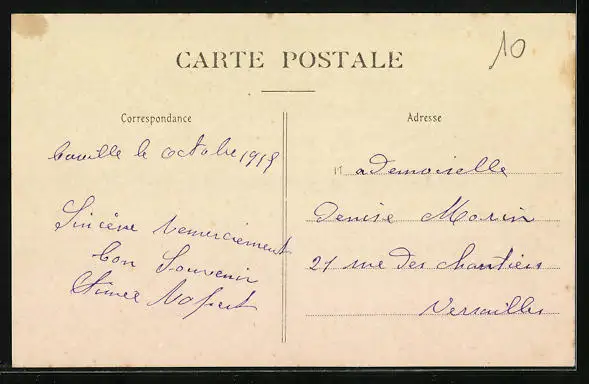 10
CARTE POSTALE
Correspondance
Adresse
le octobre 19
Sincère remerciement
bon Souvenir
Mademoiselle
Denise Morin
21 rue des chantiers
Versailles